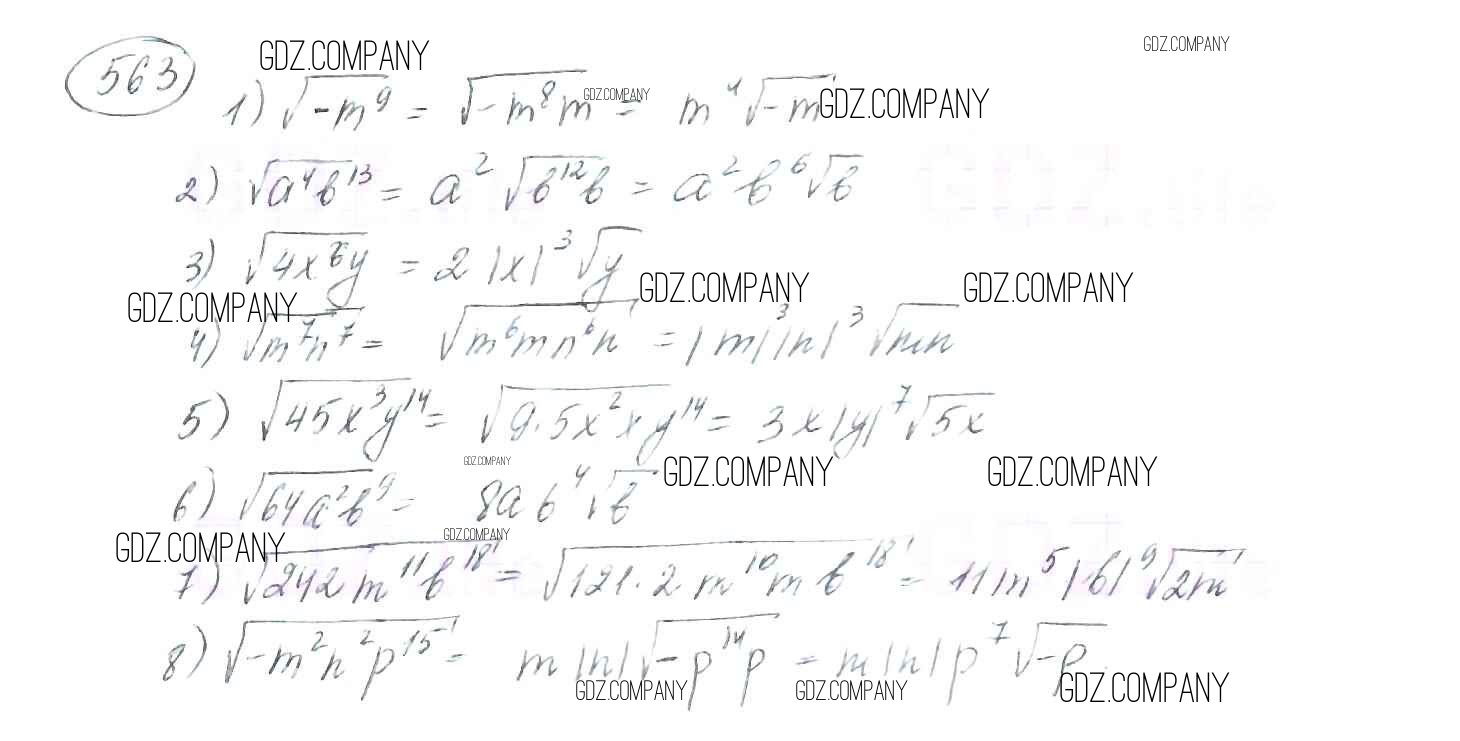 563
GDZ.COMPANY
GDZ.COMPANY
1) √-m⁹ = √-m⁸m = m⁴√-m
GDZ.COMPANY
GDZ.COMPANY
2) √a⁴b¹³ = a²√b¹²b = a²b⁶√b
3) √4x⁶y = 2|x|³√y
GDZ.COMPANY
GDZ.COMPANY
GDZ.COMPANY
4) √m⁷n⁷ = √m⁶mn⁶n = |m|³|n|³√mn
5) √45x³y¹⁴ = √9·5x²xy¹⁴ = 3x|y|⁷√5x
GDZ.COMPANY
GDZ.COMPANY
GDZ.COMPANY
6) √64a²b⁹ = 8ab⁴√b
GDZ.COMPANY
GDZ.COMPANY
7) √242m¹¹b¹⁸ = √121·2m¹⁰mb¹⁸ = 11m⁵|b|⁹√2m
8) √-m²n²p¹⁵ = m|n|√-p¹⁴p = m|n|p⁷√-p
GDZ.COMPANY
GDZ.COMPANY
GDZ.COMPANY